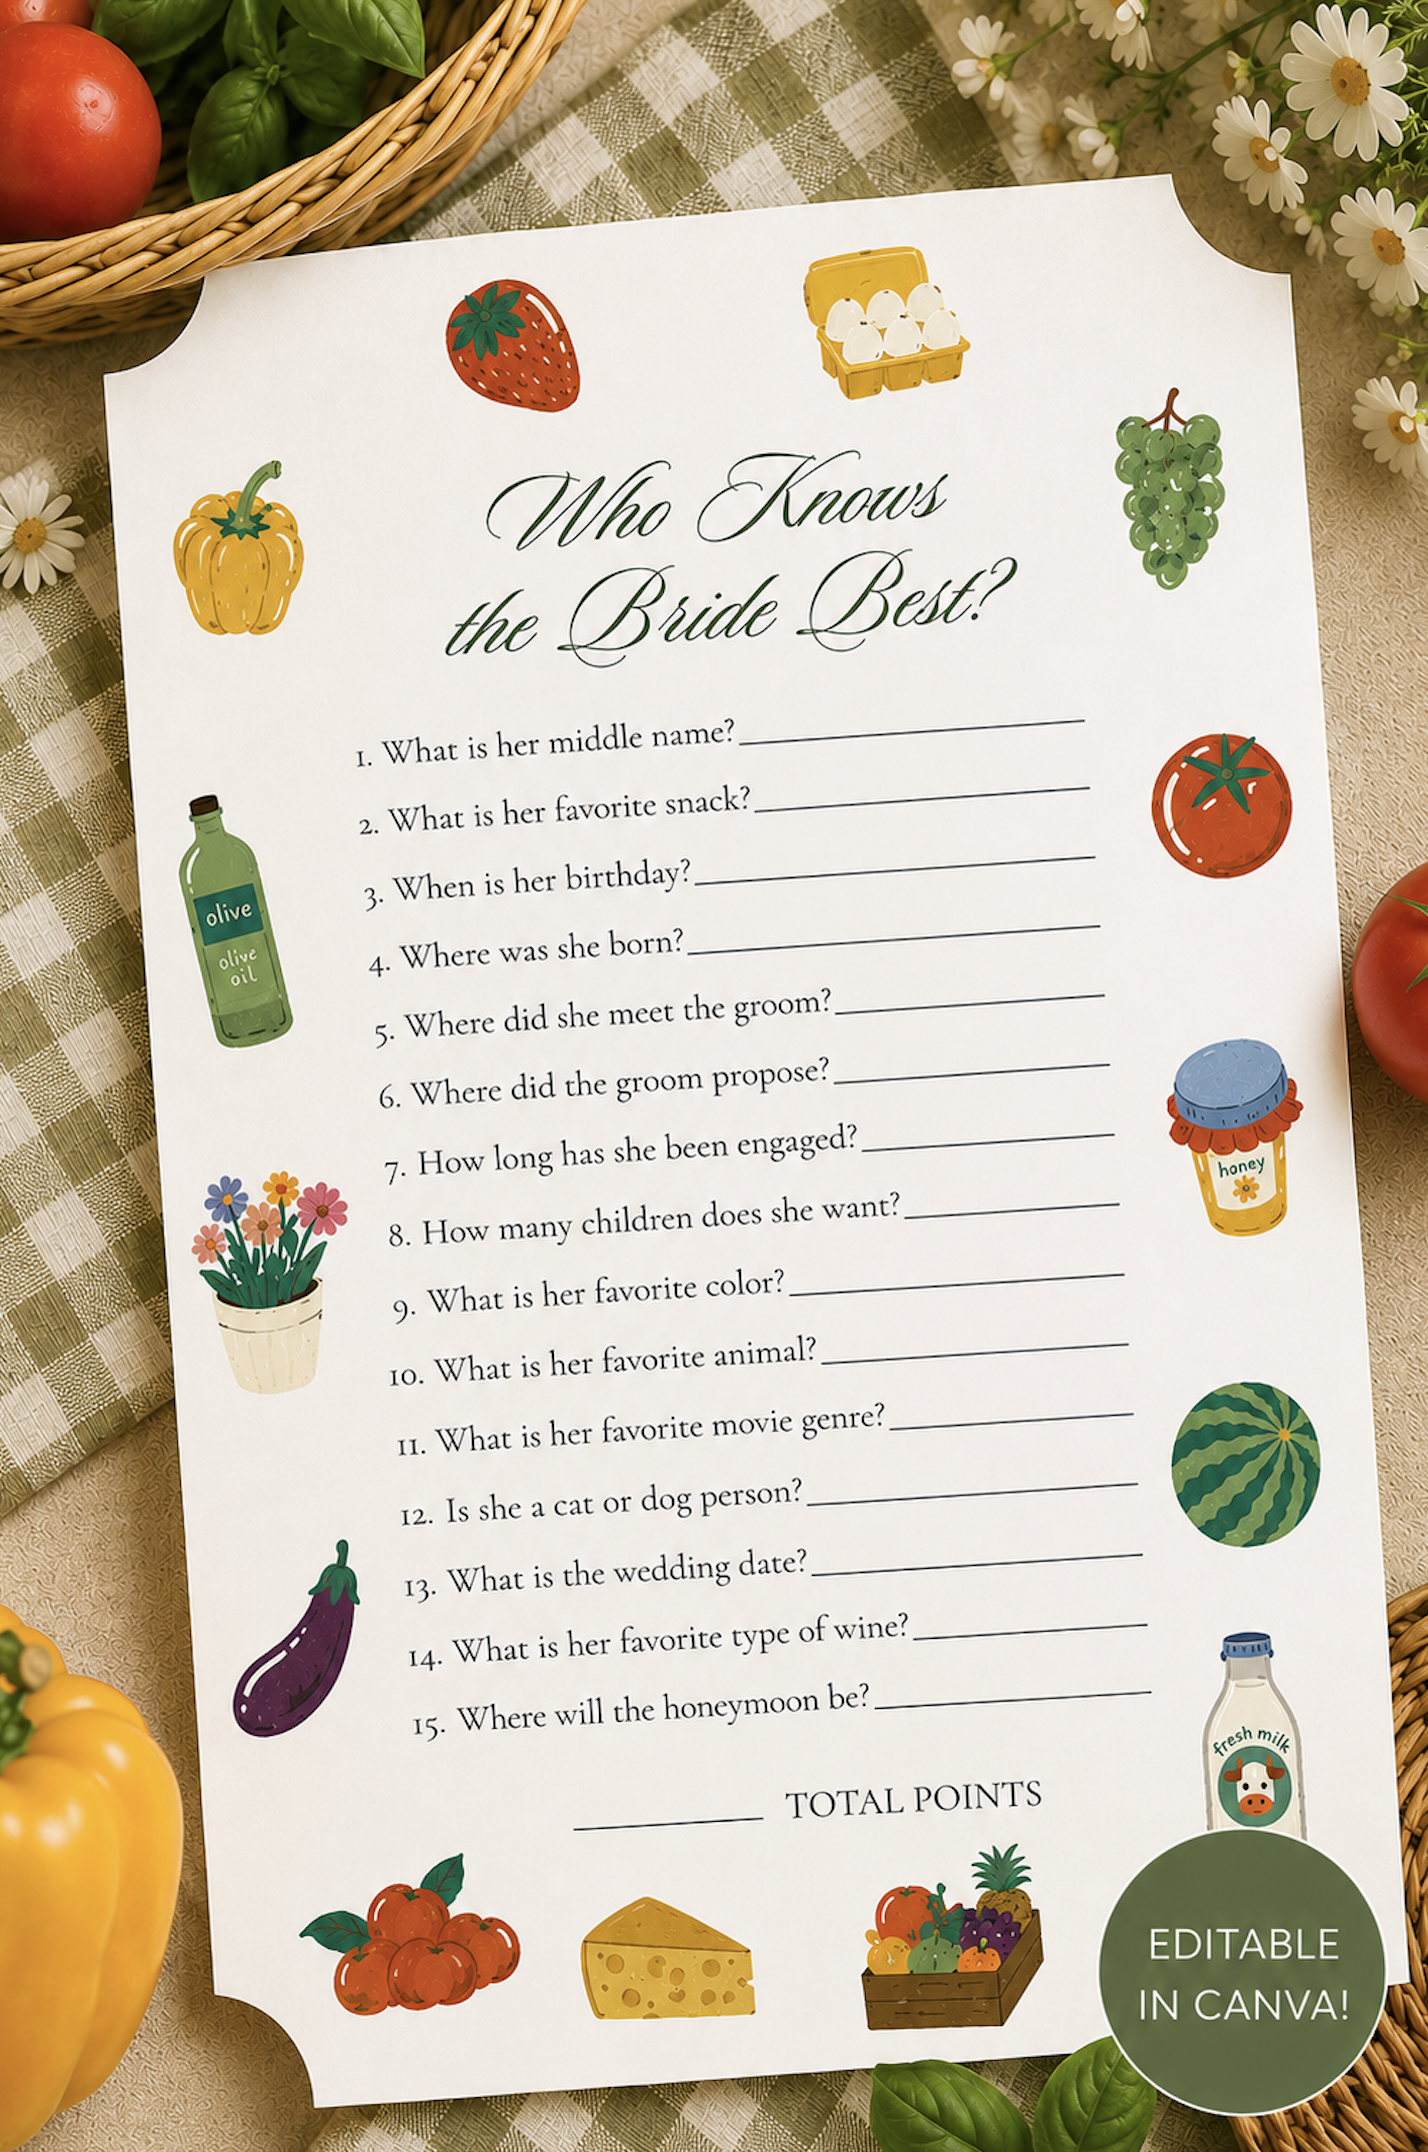 Who Knows
the Bride Best?
1. What is her middle name?
2. What is her favorite snack?
3. When is her birthday?
4. Where was she born?
5. Where did she meet the groom?
6. Where did the groom propose?
7. How long has she been engaged?
8. How many children does she want?
9. What is her favorite color?
10. What is her favorite animal?
11. What is her favorite movie genre?
12. Is she a cat or dog person?
13. What is the wedding date?
14. What is her favorite type of wine?
15. Where will the honeymoon be?
TOTAL POINTS
olive
olive
oil
honey
fresh milk
EDITABLE
IN CANVA!